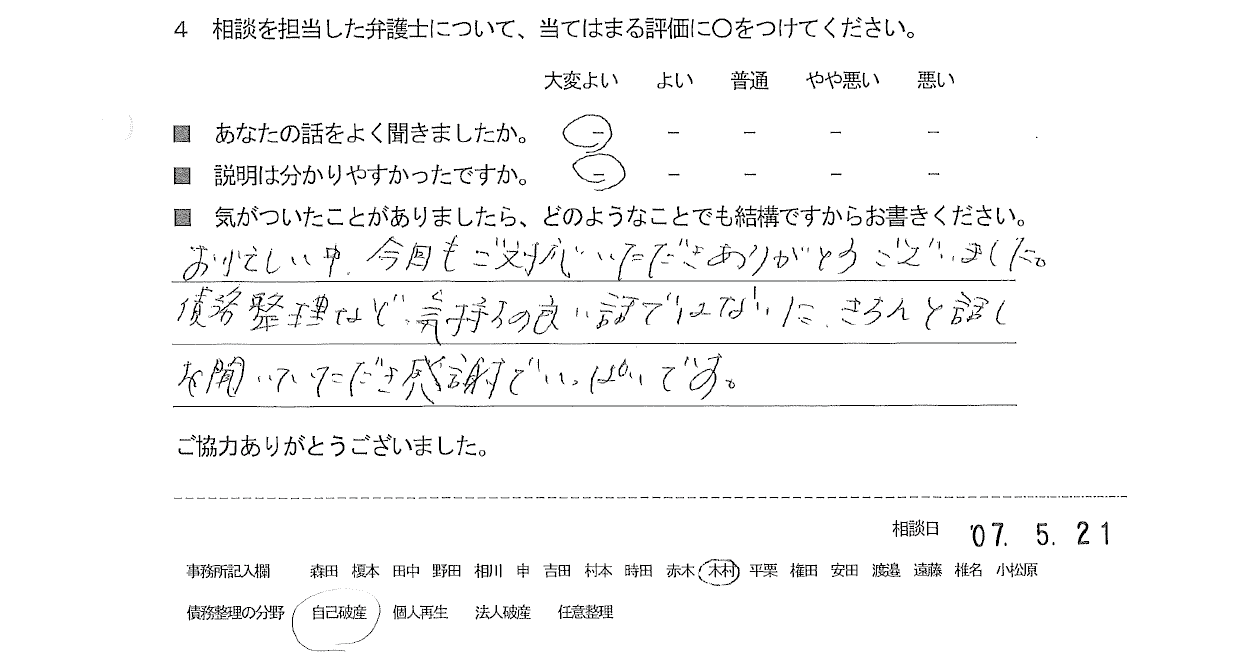 4 相談を担当した弁護士について、当てはまる評価に〇をつけてください。
大変よい よい 普通 やや悪い 悪い
■ あなたの話をよく聞きましたか。 － － － － －
■ 説明は分かりやすかったですか。 － － － － －
■ 気がついたことがありましたら、どのようなことでも結構ですからお書きください。
お忙しい中、今回もご対応いただきありがとうございました。
債務整理など、気持ちの良い話ではないに、きちんと話し
を聞いていただき感謝でいっぱいです。
ご協力ありがとうございました。
相談日 '07. 5. 21
事務所記入欄 森田 榎本 田中 野田 相川 申 吉田 村本 時田 赤木 木村 平栗 権田 安田 渡邉 遠藤 椎名 小松原
債務整理の分野 自己破産 個人再生 法人破産 任意整理